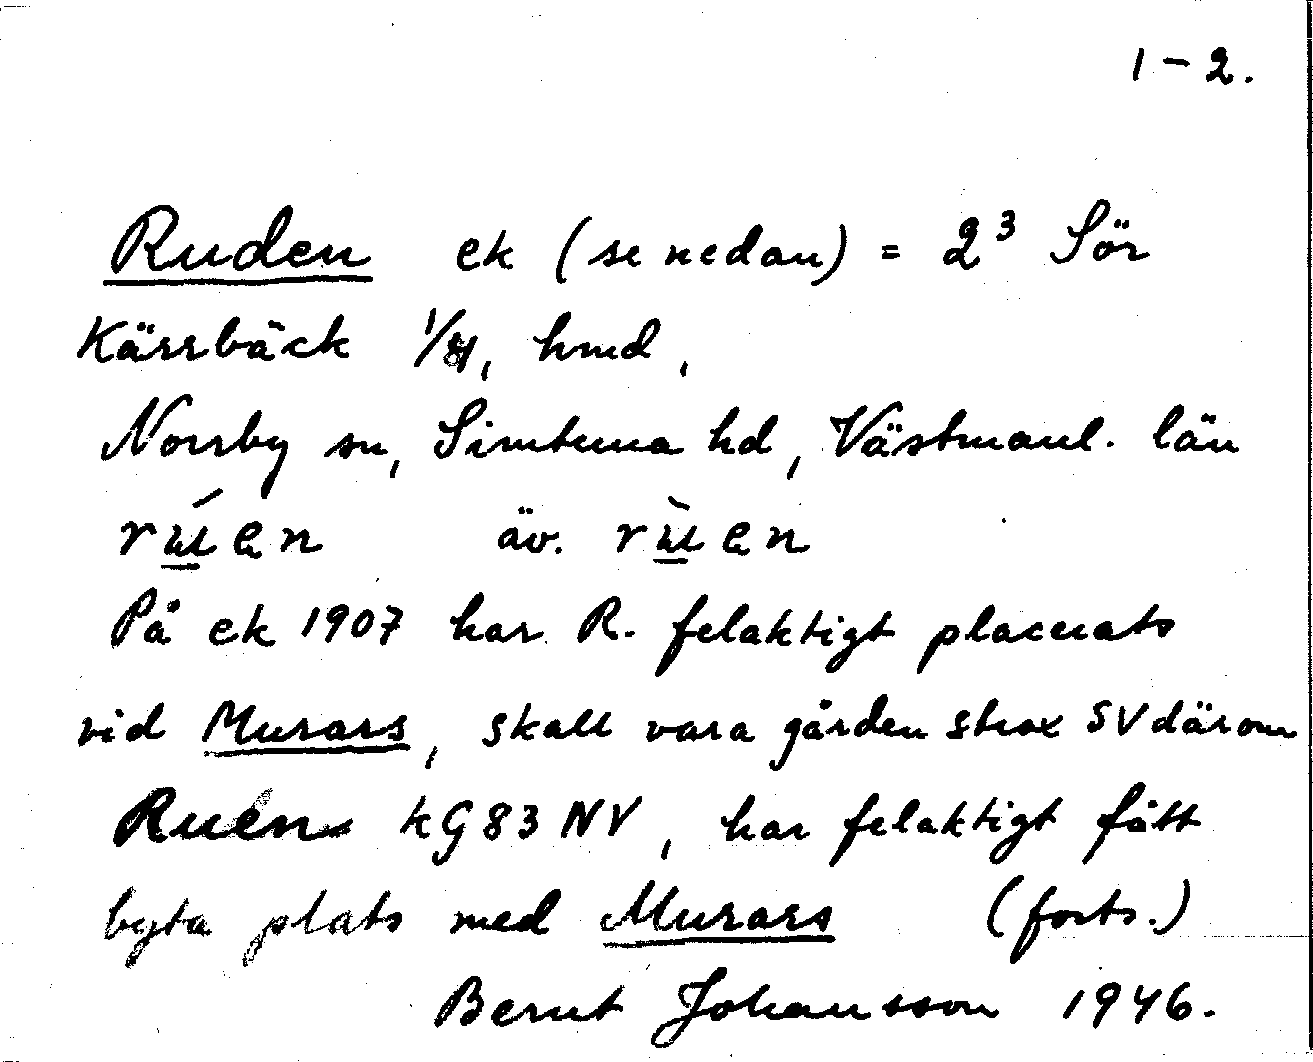 1 – 2.
Ruden ek (se nedan) = 2³ Sör
Kärrbäck 1/8, hmd,
Norrby sn, Simtuna hd, Västmanl. län
rúen äv. rùen
På ek 1907 har R. felaktigt placerats
vid Murars, skall vara gården strax SV därom
Ruen kG83NV, har felaktigt fått
byta plats med Murars (forts.)
Bernt Johansson 1946.